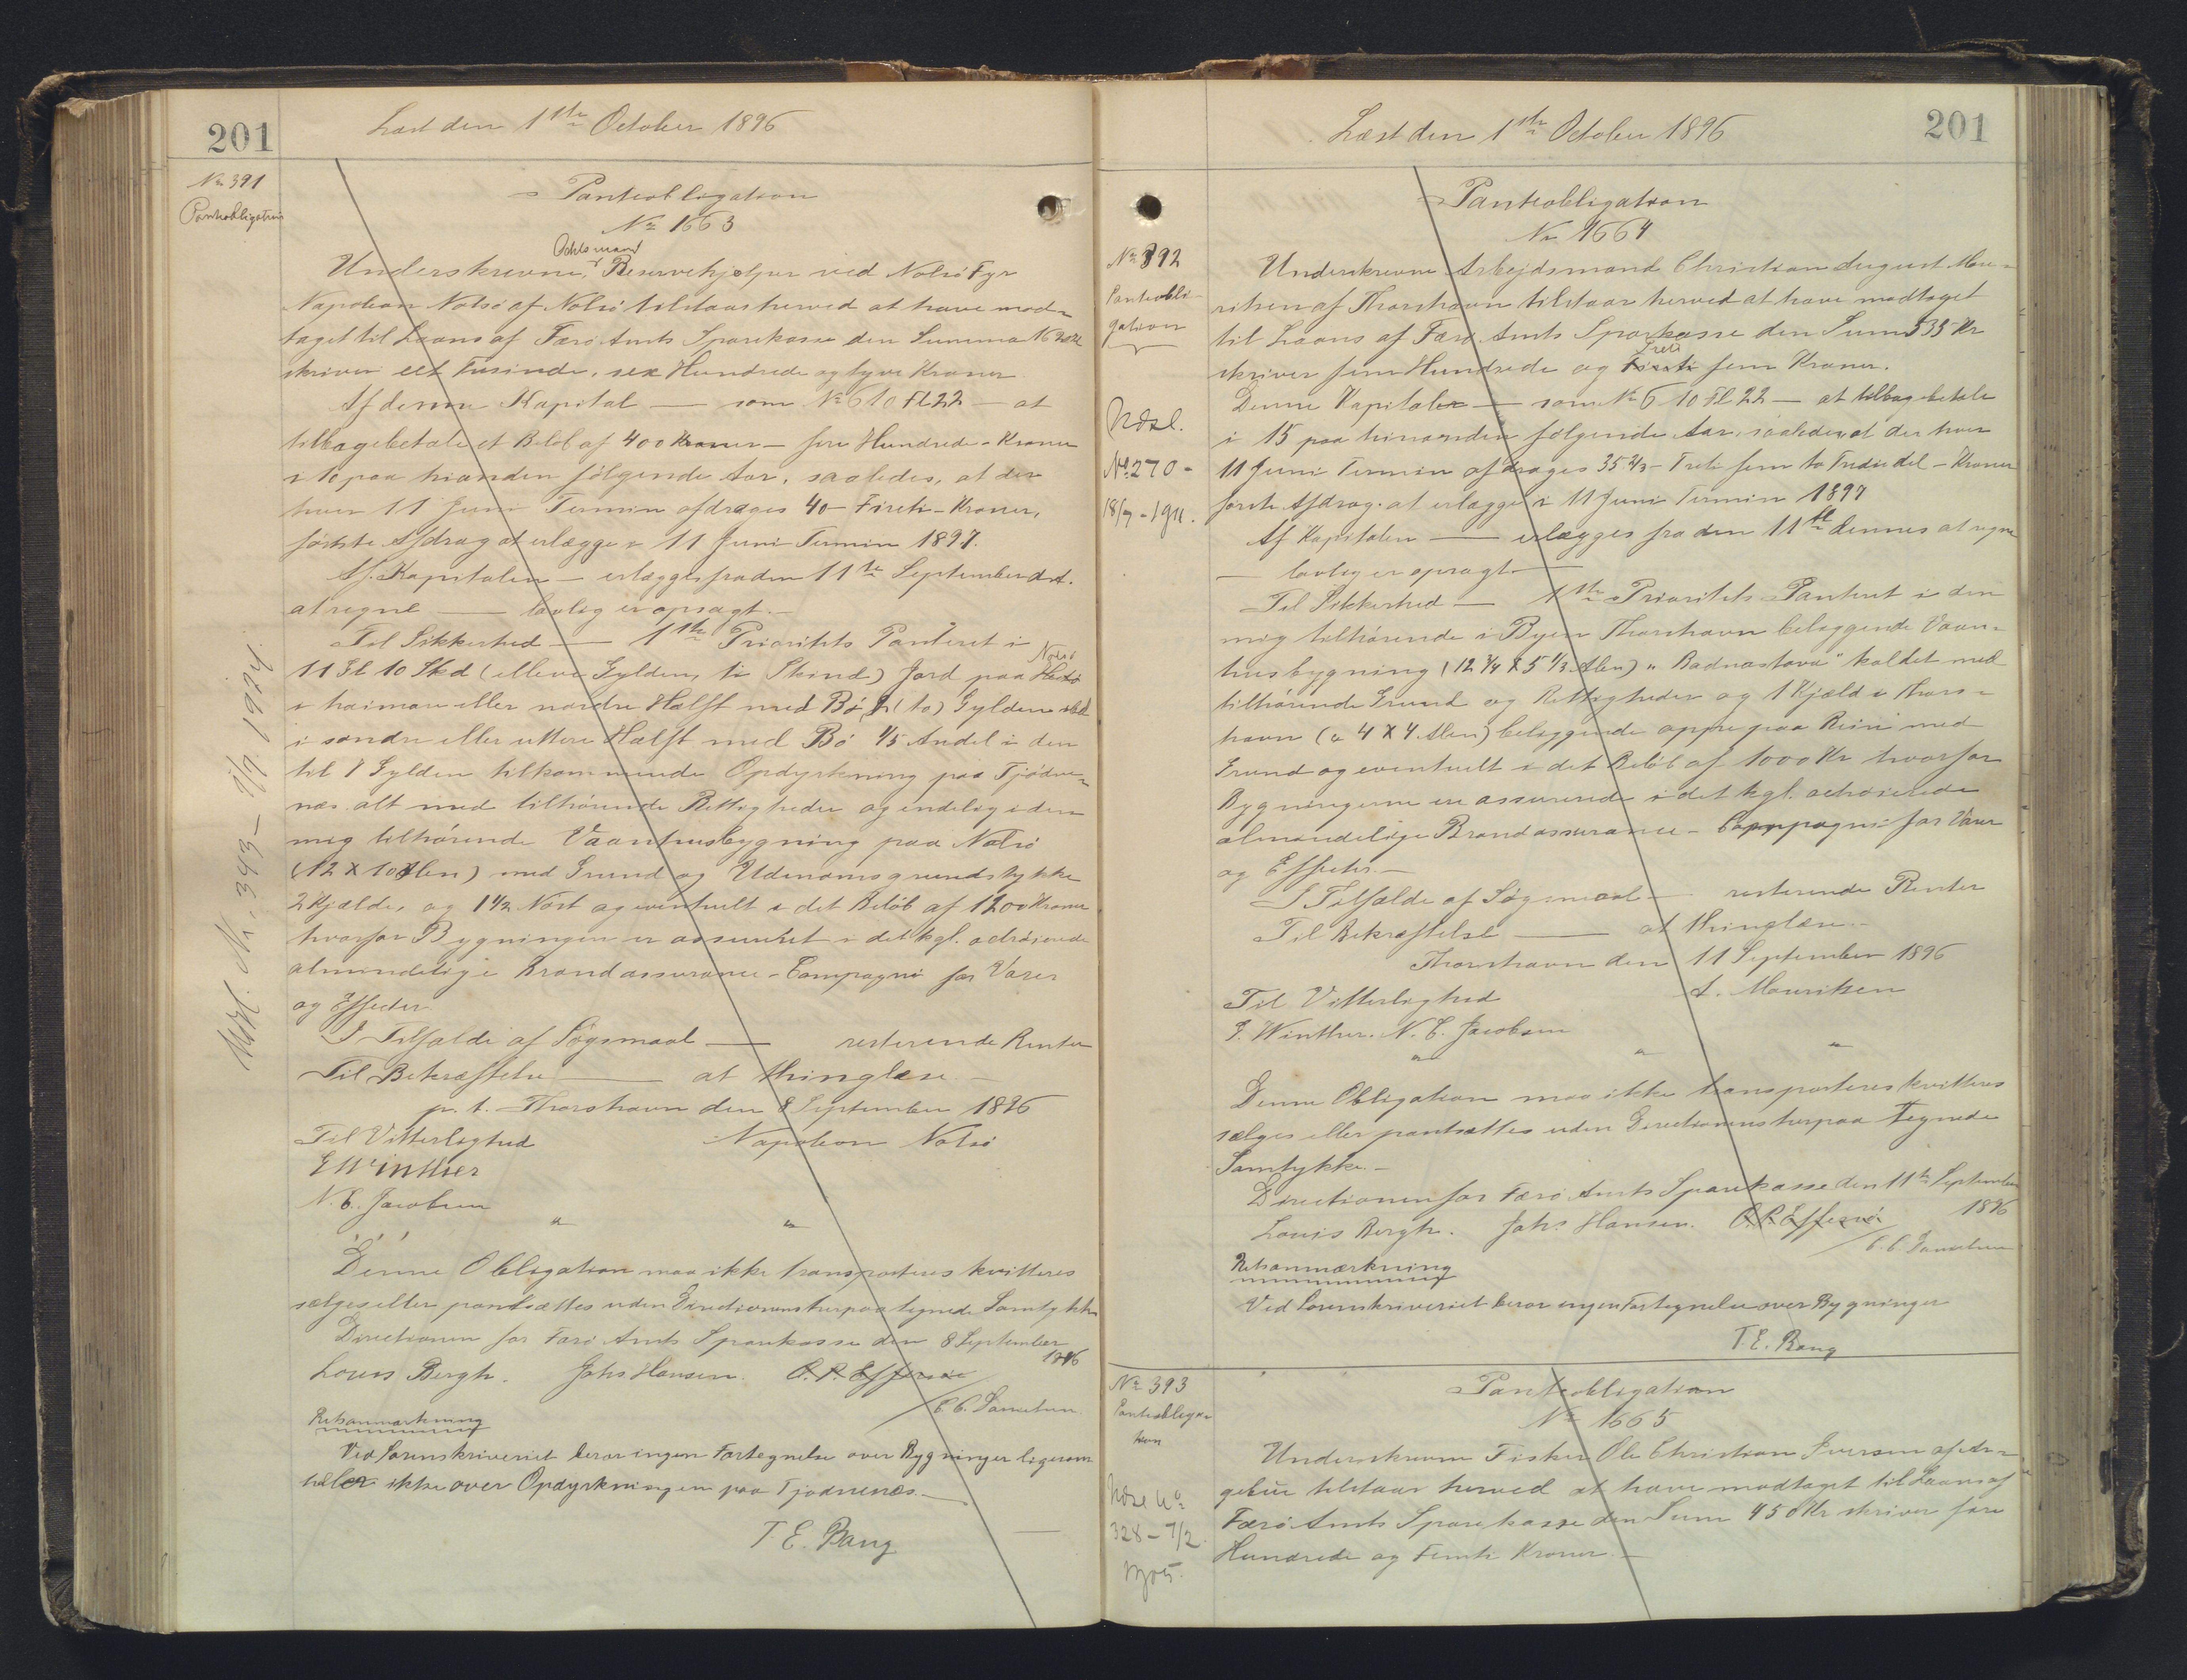 201
Læst den 1ste October 1896
No 391
Panteobligation
Panteobligation
No 1663
Odelsmand
Underskrevne, Reservehjelper ved Nolsö Fyr
Napoleon Nolsö af Nolsö tilstaar herved at have mod-
taget til Laans af Færö Amts Sparekasse den Summa 1620 Kr
skriver eet Tusinde, sex Hundrede og tyve Kroner
Af denne Kapital — som No 610 Fl 22 — at
tilbagebetale et Beløb af 400 Kroner – fire Hundrede – Kroner
i 10 paa hinanden følgende Aar, saaledes, at der
hver 11 Juni Termin afdrages 40 – Fireti – Kroner,
første Afdrag at erlægge i 11 Juni Termin 1897.
Af Kapitalen — erlægges fra den 11te September d.A.
at regne — lovlig er opsagt.—
Til Sikkerhed — 1ste Prioritets Panteret i
Nolsö
11 Gl 10 Skd (elleve Gylden, ti Skind) Jord paa
i haimare eller nordre Hælft med Bö, 2 (to) Gylden
i søndre eller uttere Hælft med Bö 1/5 Andel i den
til 1 Gylden tilkommende Opdyrkning paa Tjödne-
næs alt med tilhørende Rettigheder og endelig i den
mig tilhørende Vaanhusbygning paa Nolsö
(12 x 10 Alen) med Grund og Udenomsgrundstykke
2 Kjælde, og 1 1/2 Nöst og eventuelt i det Beløb af 1200 Kroner
hvorfor Bygningen er assureret i det kgl. octroierede
almindelige Brandassurance-Compagni for Varer
og Effecter
I Tilfælde af Søgsmaal — resterende Renter
Til Bekræftelse — at thinglæse.—
p. t. Thorshavn den 8 September 1896
Til Vitterlighed Napoleon Nolsö
E Winther
N. C. Jacobsen
" "
Denne Obligation maa ikke transporteres kvitteres
sælges eller pantsættes uden Directionens herpaa tegnede Samtykke
Directionen for Færö Amts Sparekasse den 8 September
1896
Louis Bergh. Johs Hansen. O. P. Effersøe
/ C. C. Danielsen
Retsanmærkning
Ved Sorenskriveriet beror ingen Fortegnelse over Bygninger ligesom
heller ikke over Opdyrkningen paa Tjodnenæs.—
T. E. Bang
Udsl. Nr. 353 – 1/9 1921.
201
Læst den 1ste October 1896
No 392
Panteobli-
gation
Udsl.
No 270 -
18/7 - 1911.
Panteobligation
No 1664
Underskrevne Arbejdsmand Christian August Mou-
ritsen af Thorshavn tilstaar herved at have modtaget
til Laans af Færö Amts Sparkasse den Sum 535 Kr
Treti
skriver fem Hundrede og Fireti fem Kroner.
Denne Kapital — som No 610 Fl 22 — at tilbagebetale
i 15 paa hinanden følgende Aar, saaledes, at der hver
11 Juni Termin afdrages 35 2/3 – Treti fem to Trediedel – Kroner
første Afdrag at erlægge i 11 Juni Termin 1897
Af Kapitalen — erlægges fra den 11te dennes at regne
— lovlig er opsagt —
Til Sikkerhed — 1ste Prioritets Panteret i den
mig tilhørende i Byen Thorshavn beliggende Vaan-
husbygning (12 3/4 x 5 1/3 Alen) „Badnastova" kaldet med
tilhørende Grund og Rettigheder og 1 Kjæld i Thors-
havn (a 4 x 4 Alen) beliggende oppe paa Reini med
Grund og eventuelt i det Beløb af 1000 Kr hvorfor
Bygningerne ere assurerede i det kgl. octroierede
almindelige Brandassurance-Compagni for Varer
og Effecter.—
I Tilfælde af Søgsmaal — resterende Renter
Til Bekræftelse — at thinglæse.—
Thorshavn den 11 September 1896
Til Vitterlighed A. Mouritsen
E. Winther. N. C. Jacobsen
" " "
Denne Obligation maa ikke transporteres kvitteres
sælges eller pantsættes uden Directionens herpaa tegnede
Samtykke.—
Directionen for Færö Amts Sparekasse den 11te September
1896
Louis Bergh. Johs Hansen. O. P. Effersøe
/ C. C. Danielsen
Retsanmærkning
Ved Sorenskriveriet beror ingen Fortegnelse over Bygninger
T. E. Bang
No 393
Panteobliga-
tion
Udsl No
328 – 7/2
1905.
Panteobligation
No 1665
Underskrevne Fisker Ole Christian Iversen af Ar-
gebue tilstaar herved at have modtaget til Laans af
Færö Amts Sparekasse den Sum 450 Kr skriver fire
Hundrede og Femti Kroner.—